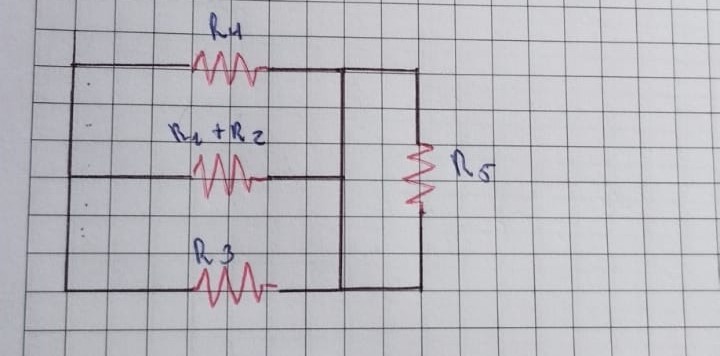 R4
R1 + R2
R5
R3